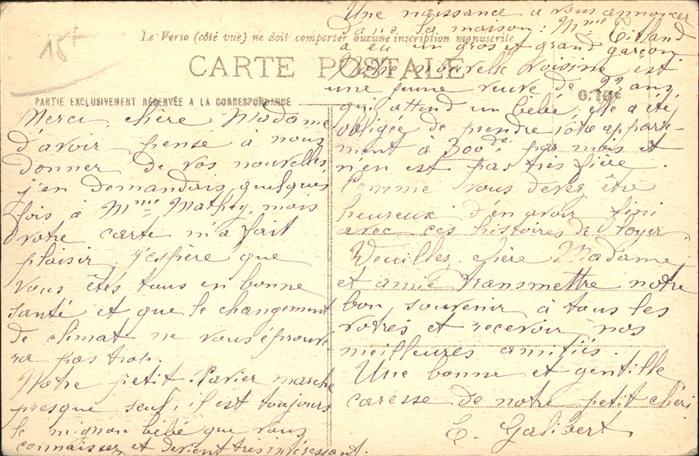 15f
Le Verso (côté vue) ne doit comporter aucune inscription manuscrite
CARTE POSTALE
PARTIE EXCLUSIVEMENT RÉSERVÉE A LA CORRESPONDANCE
0.10c
Merci, chère Madame
d'avoir pensé à nous
donner de vos nouvelles,
j'en demandais quelques
fois à Mme Mathey, mais
votre carte m'a fait
plaisir. j'espère que
vous êtes tous en bonne
santé et que le changement
de climat ne vous éprouve
ra pas trop.
Notre petit Xavier marche
presque seul, il est toujours
le mignon bébé que vous
connaissez et devient très intéressant.
Une naissance à vous annoncer
dans la maison: Mme
a eu un gros et grand garçon
Notre nouvelle voisine est
une jeune veuve de 22 ans,
qui attend un bébé, elle a été
obligée de prendre votre apparte-
ment à 300 par mois et
n'en est pas très fière.
Comme vous devez être
heureux d'en avoir fini
avec ces histoires de loyer.
Veuillez, chère Madame
et amie transmettre notre
bon souvenir à tous les
vôtres et recevoir nos
meilleures amitiés.
Une bonne et gentille
caresse de notre petit chéri
E. Galibert